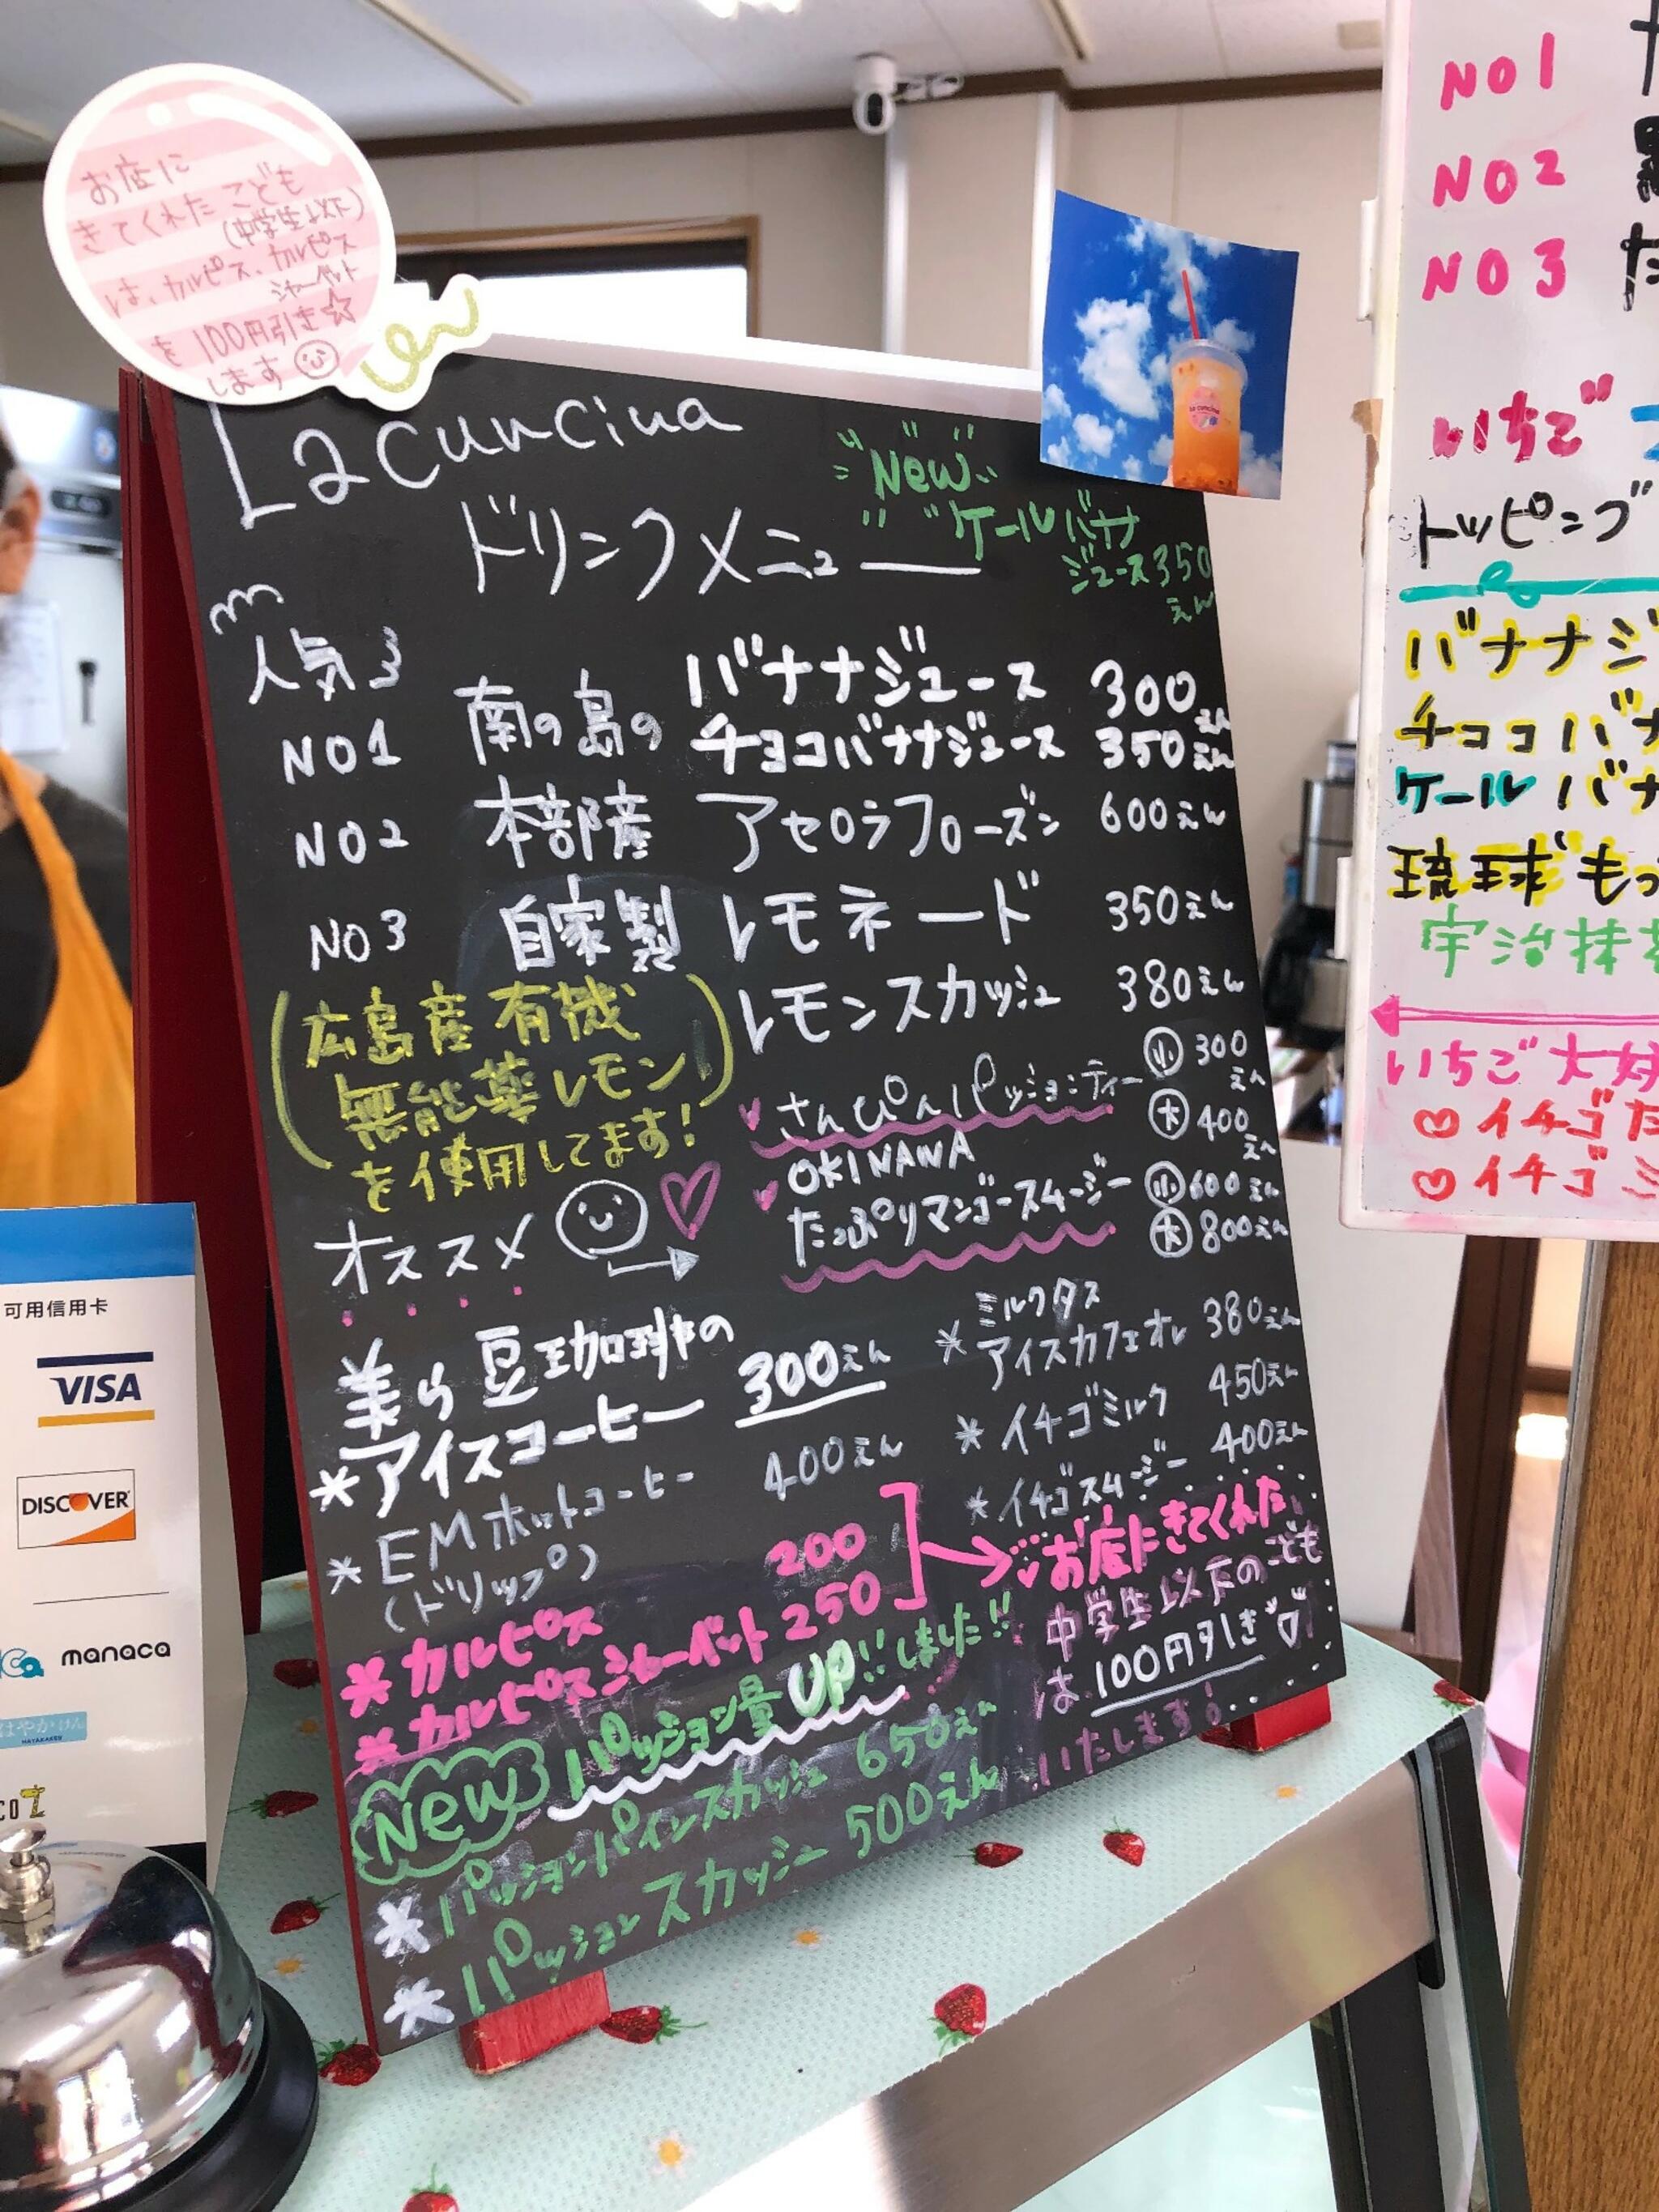 お店に
きてくれた こども
(中学生以下)
は、カルピス、カルピス
シャーベット
を 100円引き☆
します
La cuncina
ドリンクメニュー
New
ケールバナナ
ジュース 350
えん
人気3
NO1 南の島の バナナジュース 300えん
チョコバナナジュース 350えん
NO2 本部産 アセロラフローズン 600えん
NO3 自家製 レモネード 350えん
レモンスカッシュ 380えん
(広島産有機
無能薬レモン)
を使用してます!
オススメ
さんぴんパッションティー 小 300えん
大 400えん
OKINAWA
たっぷりマンゴースムージー 小 600えん
大 800えん
美ら豆珈琲の
*アイスコーヒー 300えん
*EMホットコーヒー 400えん
(ドリップ)
*カルピス 200
*カルピスシャーベット 250
ミルクタス
*アイスカフェオレ 380えん
*イチゴミルク 450えん
*イチゴスムージー 400えん
お店にきてくれた
中学生以下のこども
は 100円引き
いたします!
New パッション量UP!!しました!!
*パッションパインスカッシュ 650えん
*パッションスカッシュ 500えん
NO1
NO2
NO3
いちご
トッピング
バナナジ
チョコバナ
ケールバナ
琉球もっ
宇治抹
いちご大好
イチゴた
イチゴミ
可用信用卡
VISA
DISCOVER
manaca
はやかけん
HAYAKAKEN